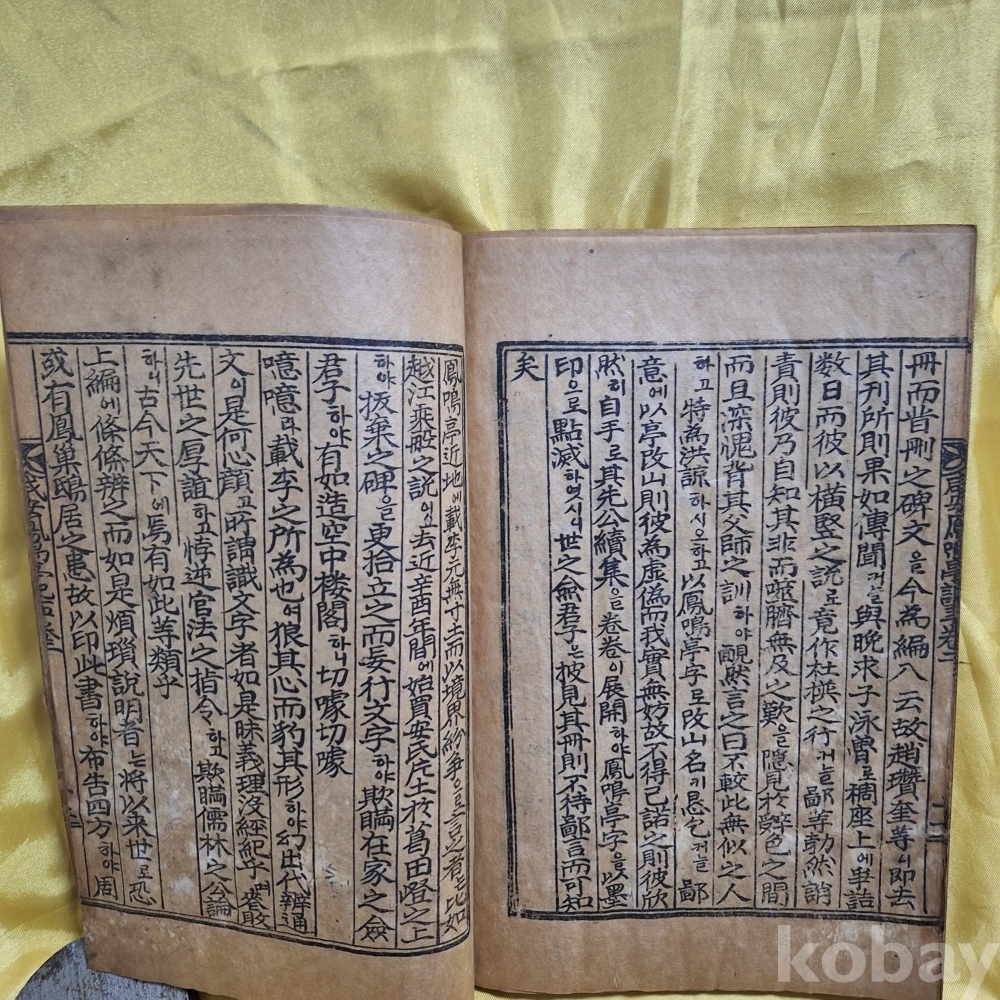 冊而昔刪之碑文을今為編入云故趙瓚奎等시即去
其刊所則果如傳聞거늘與晩求子泳曾로稠座上에
数日而彼以橫竪之説로竟作杜撰之行거늘鄙等勃然誚
責則彼乃自知其非而噬臍無及之歎을隱見於辭色之間
而且深愧背其父師之訓하야靦然言之曰不較此無似之人
하고特為洪諒하시오하고以鳳鳴亭字로改山名기懇乞거늘鄙
意에以亭改山則彼為虛偽而我實無妨故不得已諾之則彼欣
然히自手로其先公續集으을卷卷이展開하야鳳鳴亭字을以墨
印으로點減하엿시니世之僉君子은彼見其冊則不待鄙言而可知
矣
鳳鳴亭近地에載李元無寸土而以境界紛爭으로言之者는比如
越江乘之説이오去近辛酉年間에始買安民庄土於葛田嶝之上
하야拔棄之碑을更拾立之而妄行文字하야欺瞞在家之僉
君子하야有如造空中楼閣하니切噱切噱
噫噫라載李之所為也여狼其心而豹其形하야幻出代辨通
文이是何心顔고所謂識文字者如是昧義理没經紀乎며
先世之厚誼하고悖逆官法之指令하고欺瞞儒林之公論
하니古今天下에焉有如此等類乎
上編에條條辨之而如是煩瑣説明者는将以来世로恐
或有鳳巢鴟居之患故以印此書하야布告四方하야周
kobay